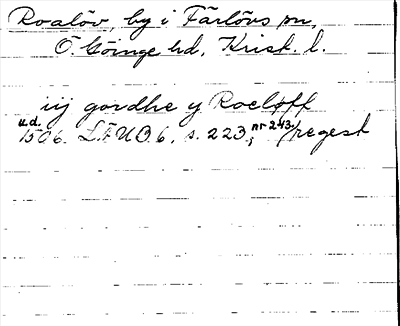 Roalöv, by i Färlövs sn,
Ö. Göinge hd, Krist. l.
iij gordhe y Roeløff
u.d.
1506. LÄUB 6, s. 223, nr 243. /regest